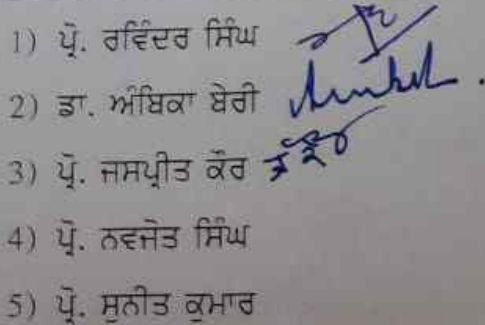 1) ਪ੍ਰੋ. ਰਵਿੰਦਰ ਸਿੰਘ
2) ਡਾ. ਅੰਬਿਕਾ ਬੇਰੀ
3) ਪ੍ਰੋ. ਜਸਪ੍ਰੀਤ ਕੌਰ
4) ਪ੍ਰੋ. ਨਵਜੋਤ ਸਿੰਘ
5) ਪ੍ਰੋ. ਸੁਨੀਤ ਕੁਮਾਰ